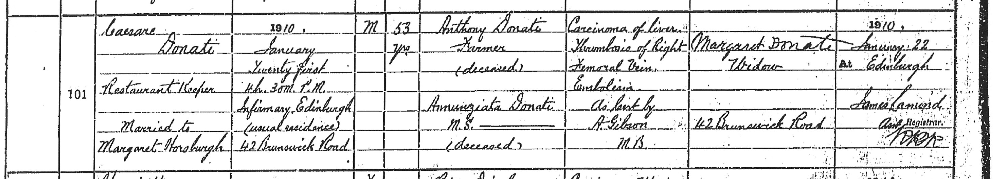 101
Caesare
Donati
Restaurant Keeper
Married to
Margaret Horsburgh
1910,
January
Twenty first
4h. 30m. P.M.
Infirmary, Edinburgh
(usual residence)
42 Brunswick Road
M
53
yrs
Anthony Donati
Farmer
(deceased)
Annunziata Donati
M.S.
(deceased)
Carcinoma of liver.
Thrombosis of Right
Femoral Vein.
Embolism
As Cert by
A Gibson
M.B.
Margaret Donati
Widow
42 Brunswick Road
1910,
January 22
At Edinburgh
James Lamond
Asst. Registrar.